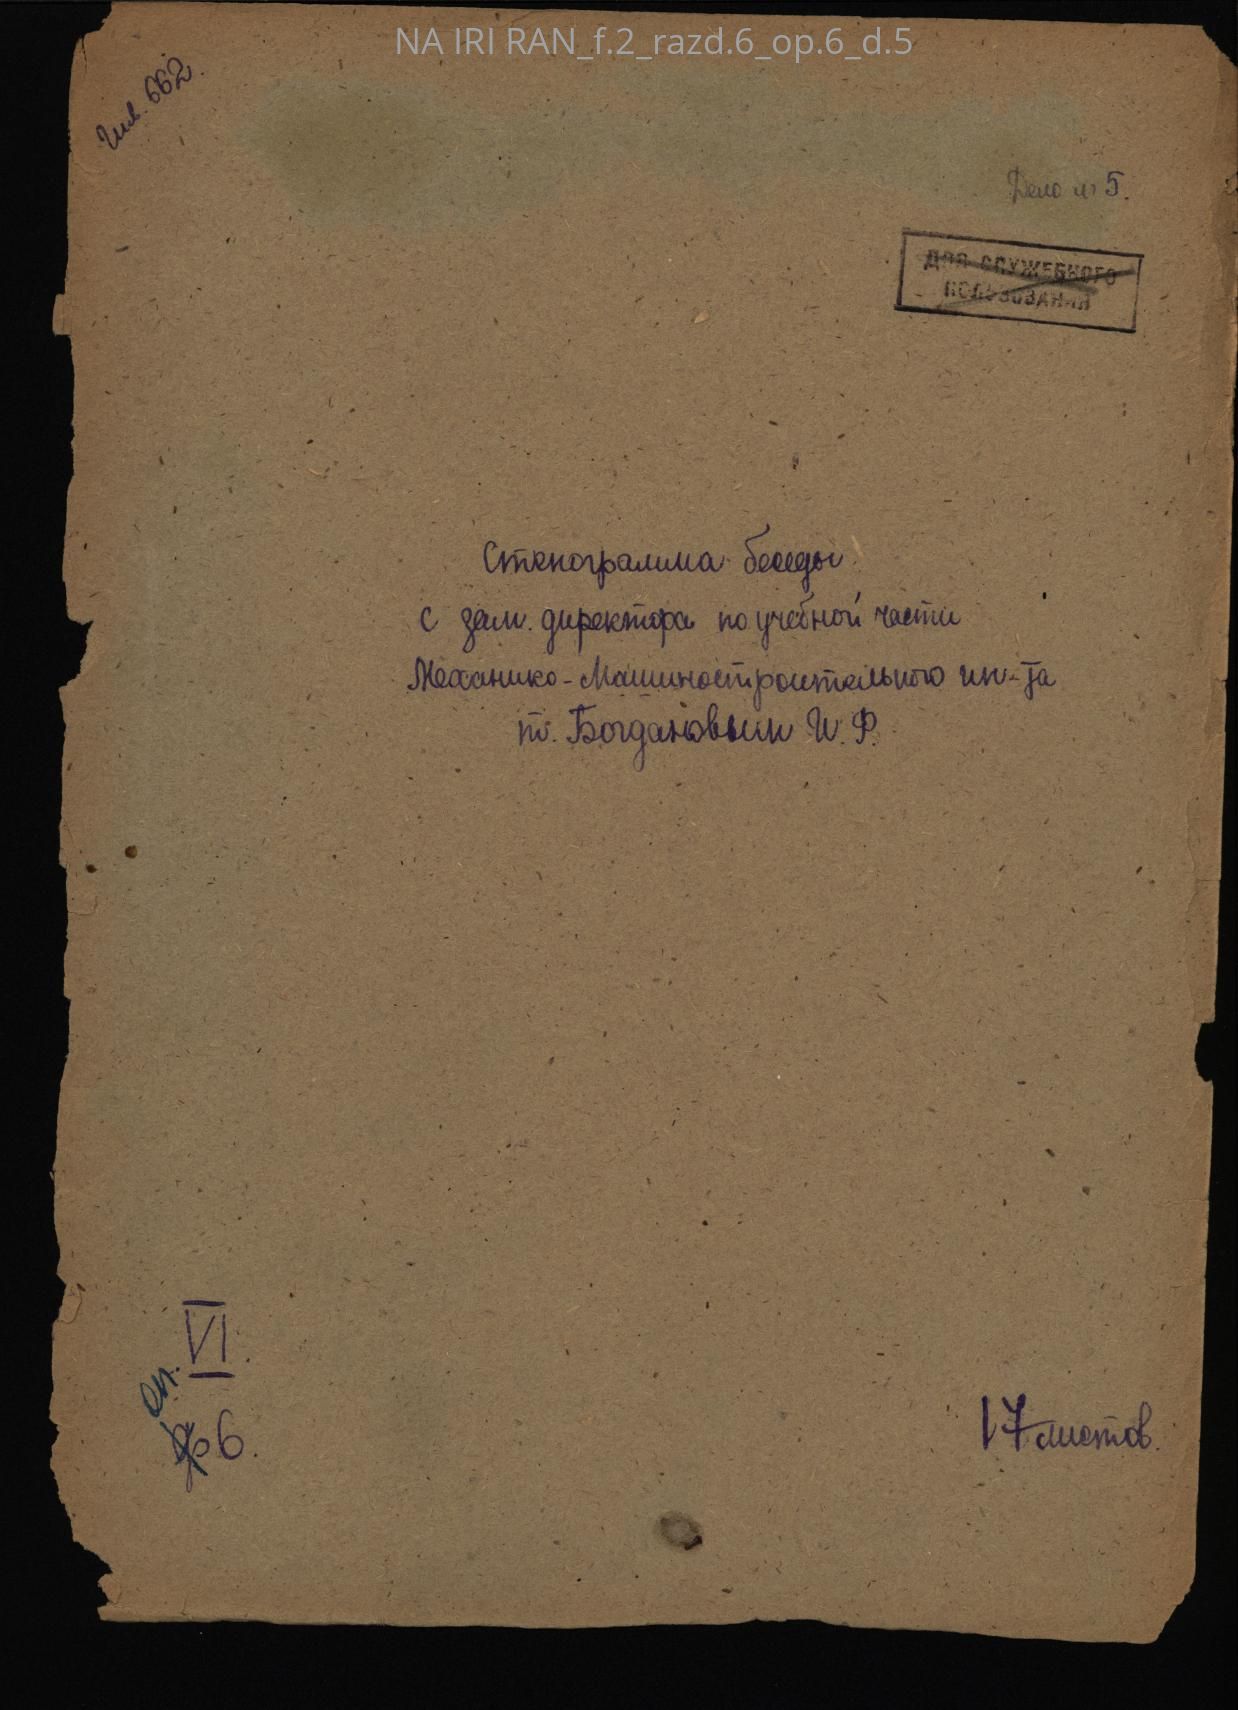 NA IRI RAN_f.2_razd.6_op.6_d.5
Инв. 662.
Дело № 5.
ДЛЯ СЛУЖЕБНОГО
ПОЛЬЗОВАНИЯ
Стенограмма беседы
с зам. директора по учебной части
Механико-Машиностроительного ин-та
т. Богдановым И. Ф.
VI.
оп.
6.
17 листов.